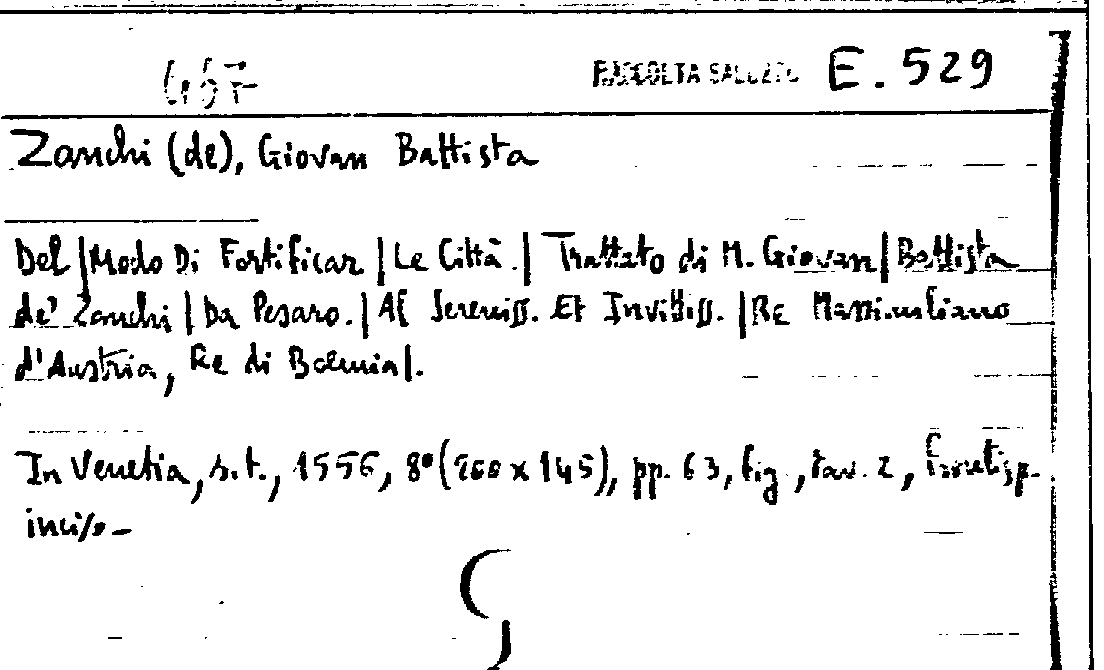 457 RACCOLTA SALUZZO E. 529
Zanchi (de), Giovan Battista
Del | Modo Di Fortificar | Le Città. | Trattato di M. Giovan | Battista
de' Zanchi | Da Pesaro. | Al Sereniss. Et Invittiss. | Re Massimiliano
d'Austria, Re di Boemia |.
In Venetia, s.t., 1556, 8° (200 x 145), pp. 63, fig., tav. 2, frontisp.
inciso -